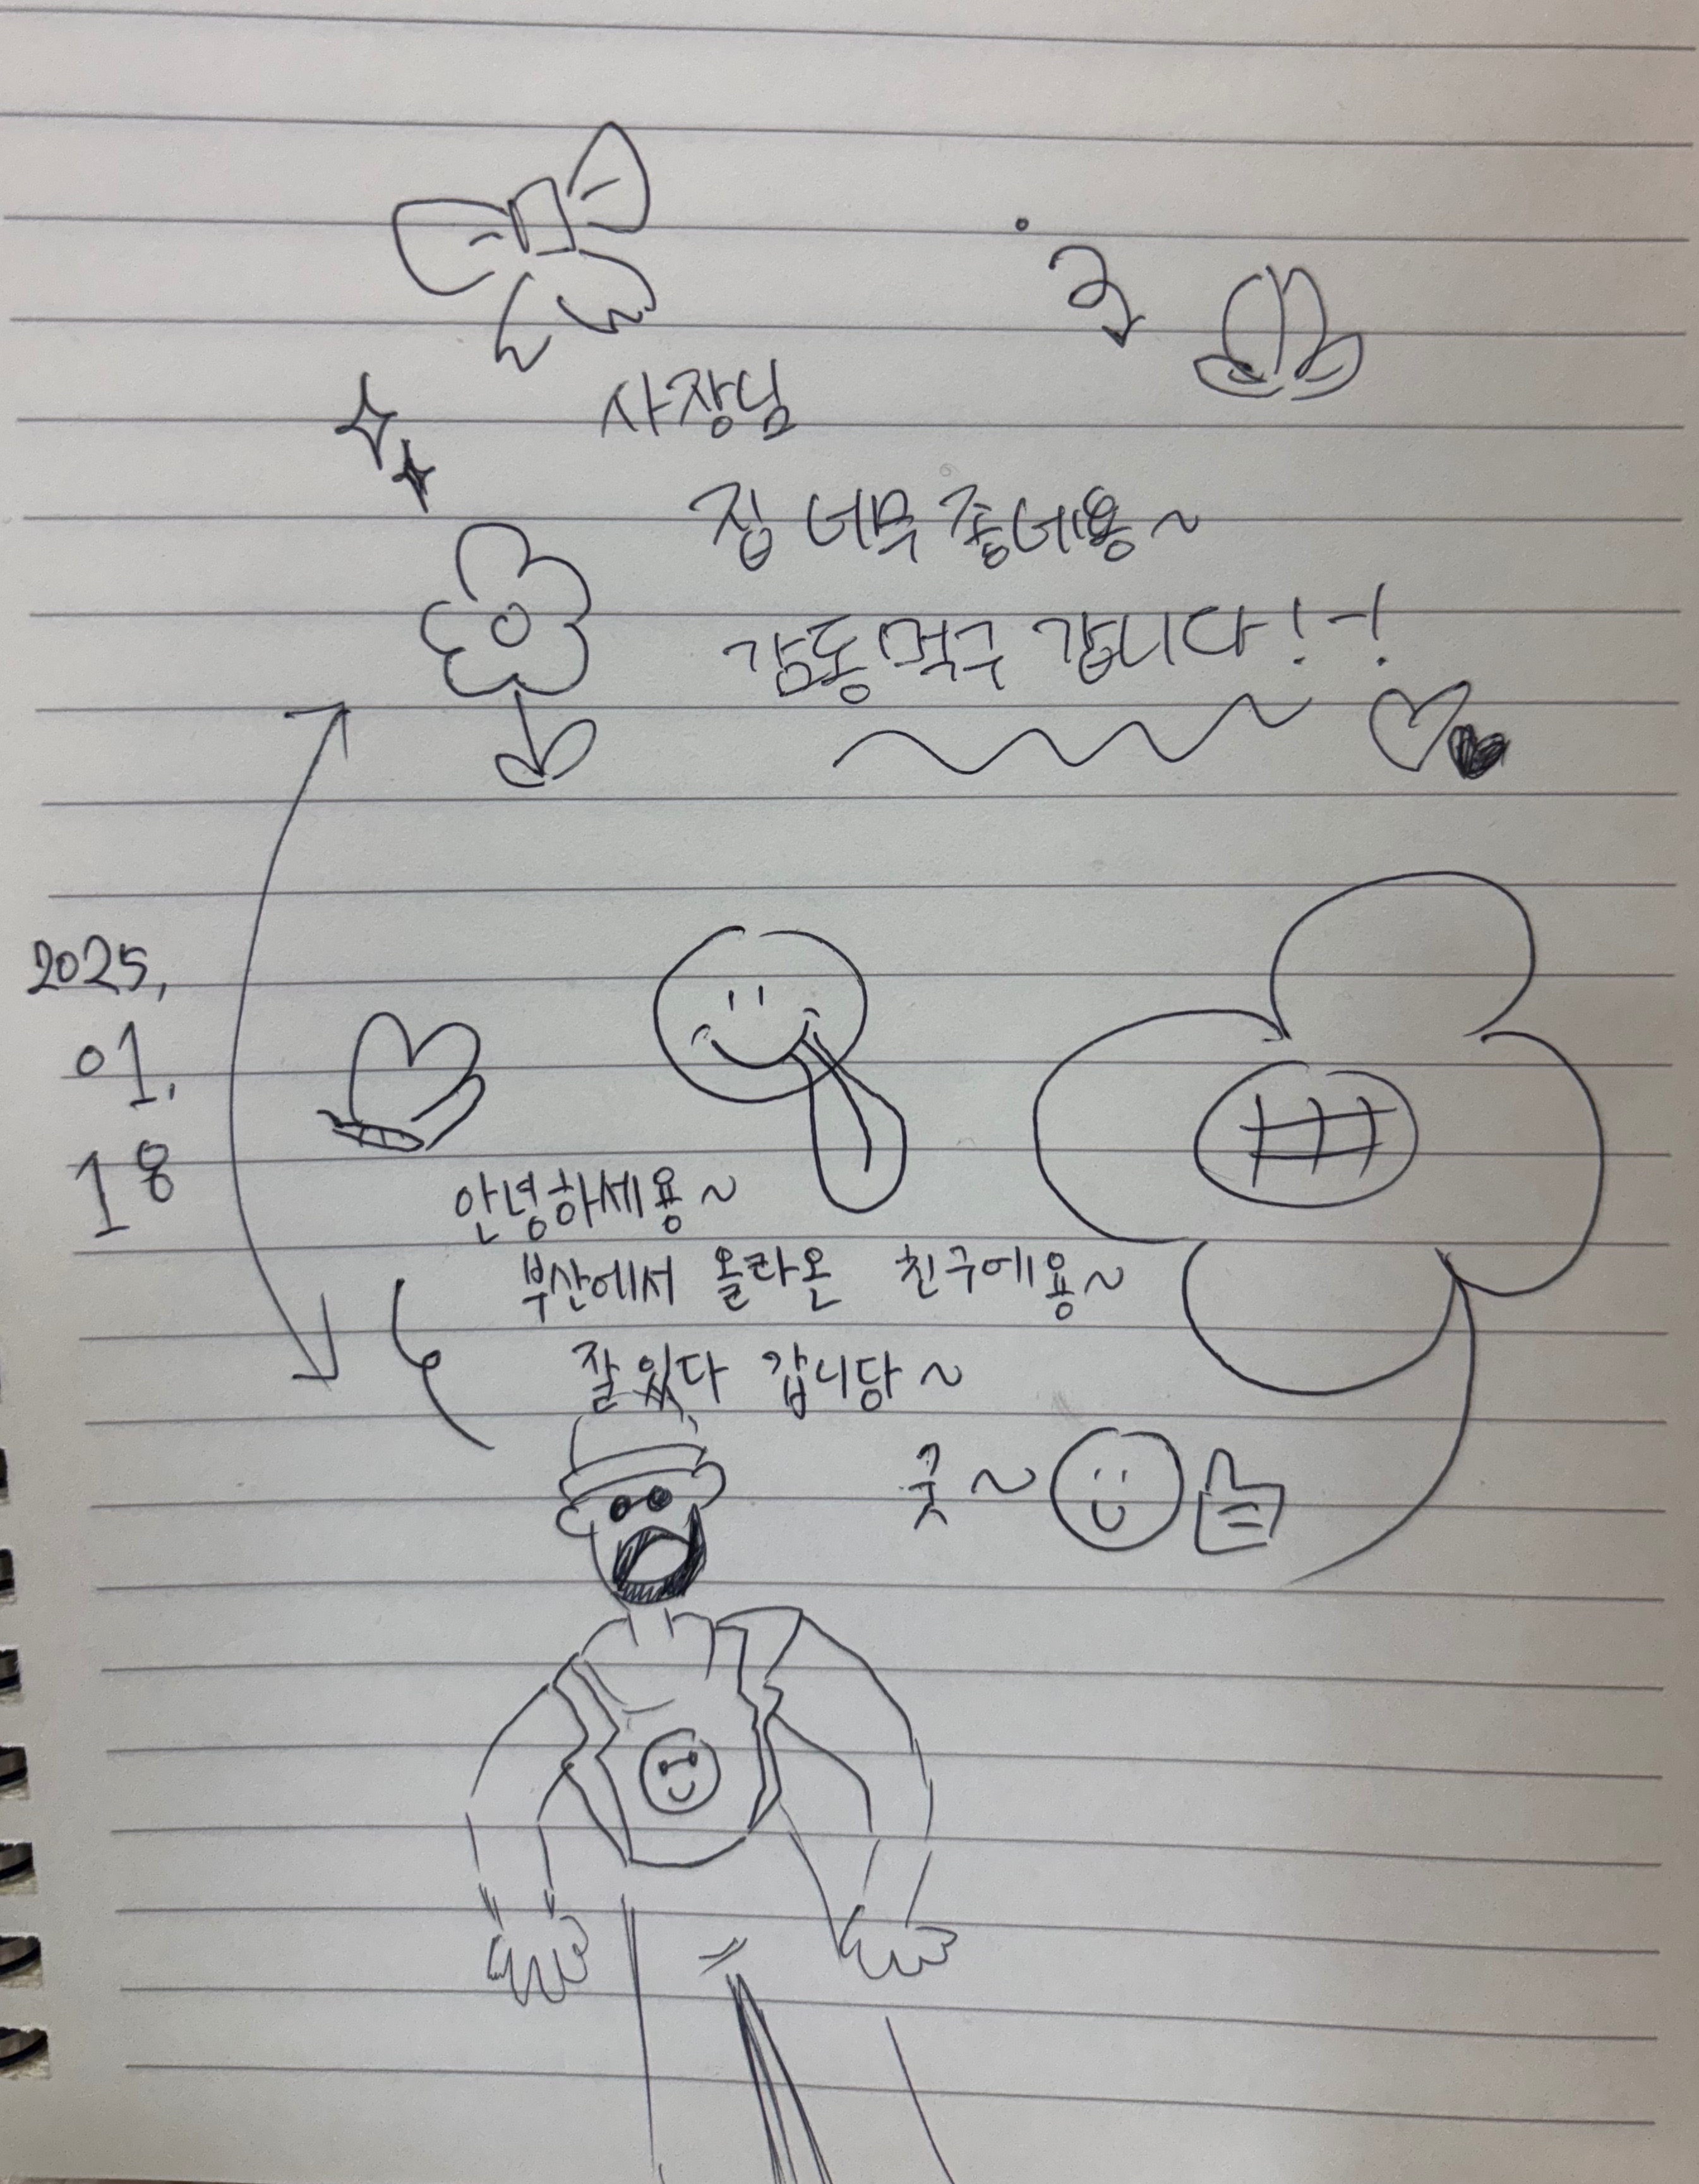 사장님
집 너무 좋네용~
감동 먹구 갑니다!-!
2025.
01.
18
안녕하세용~
부산에서 올라온 친구에용~
잘 있다 갑니당~
굿~